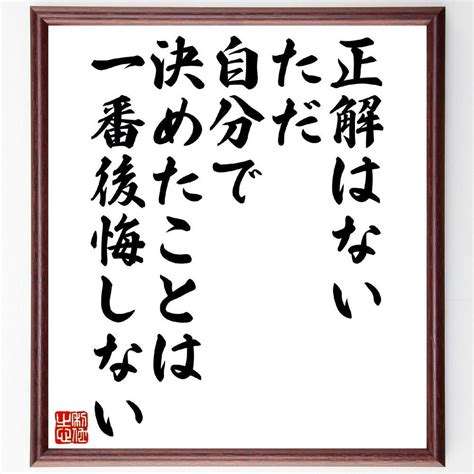 正解はない
ただ
自分で
決めたことは
一番後悔しない